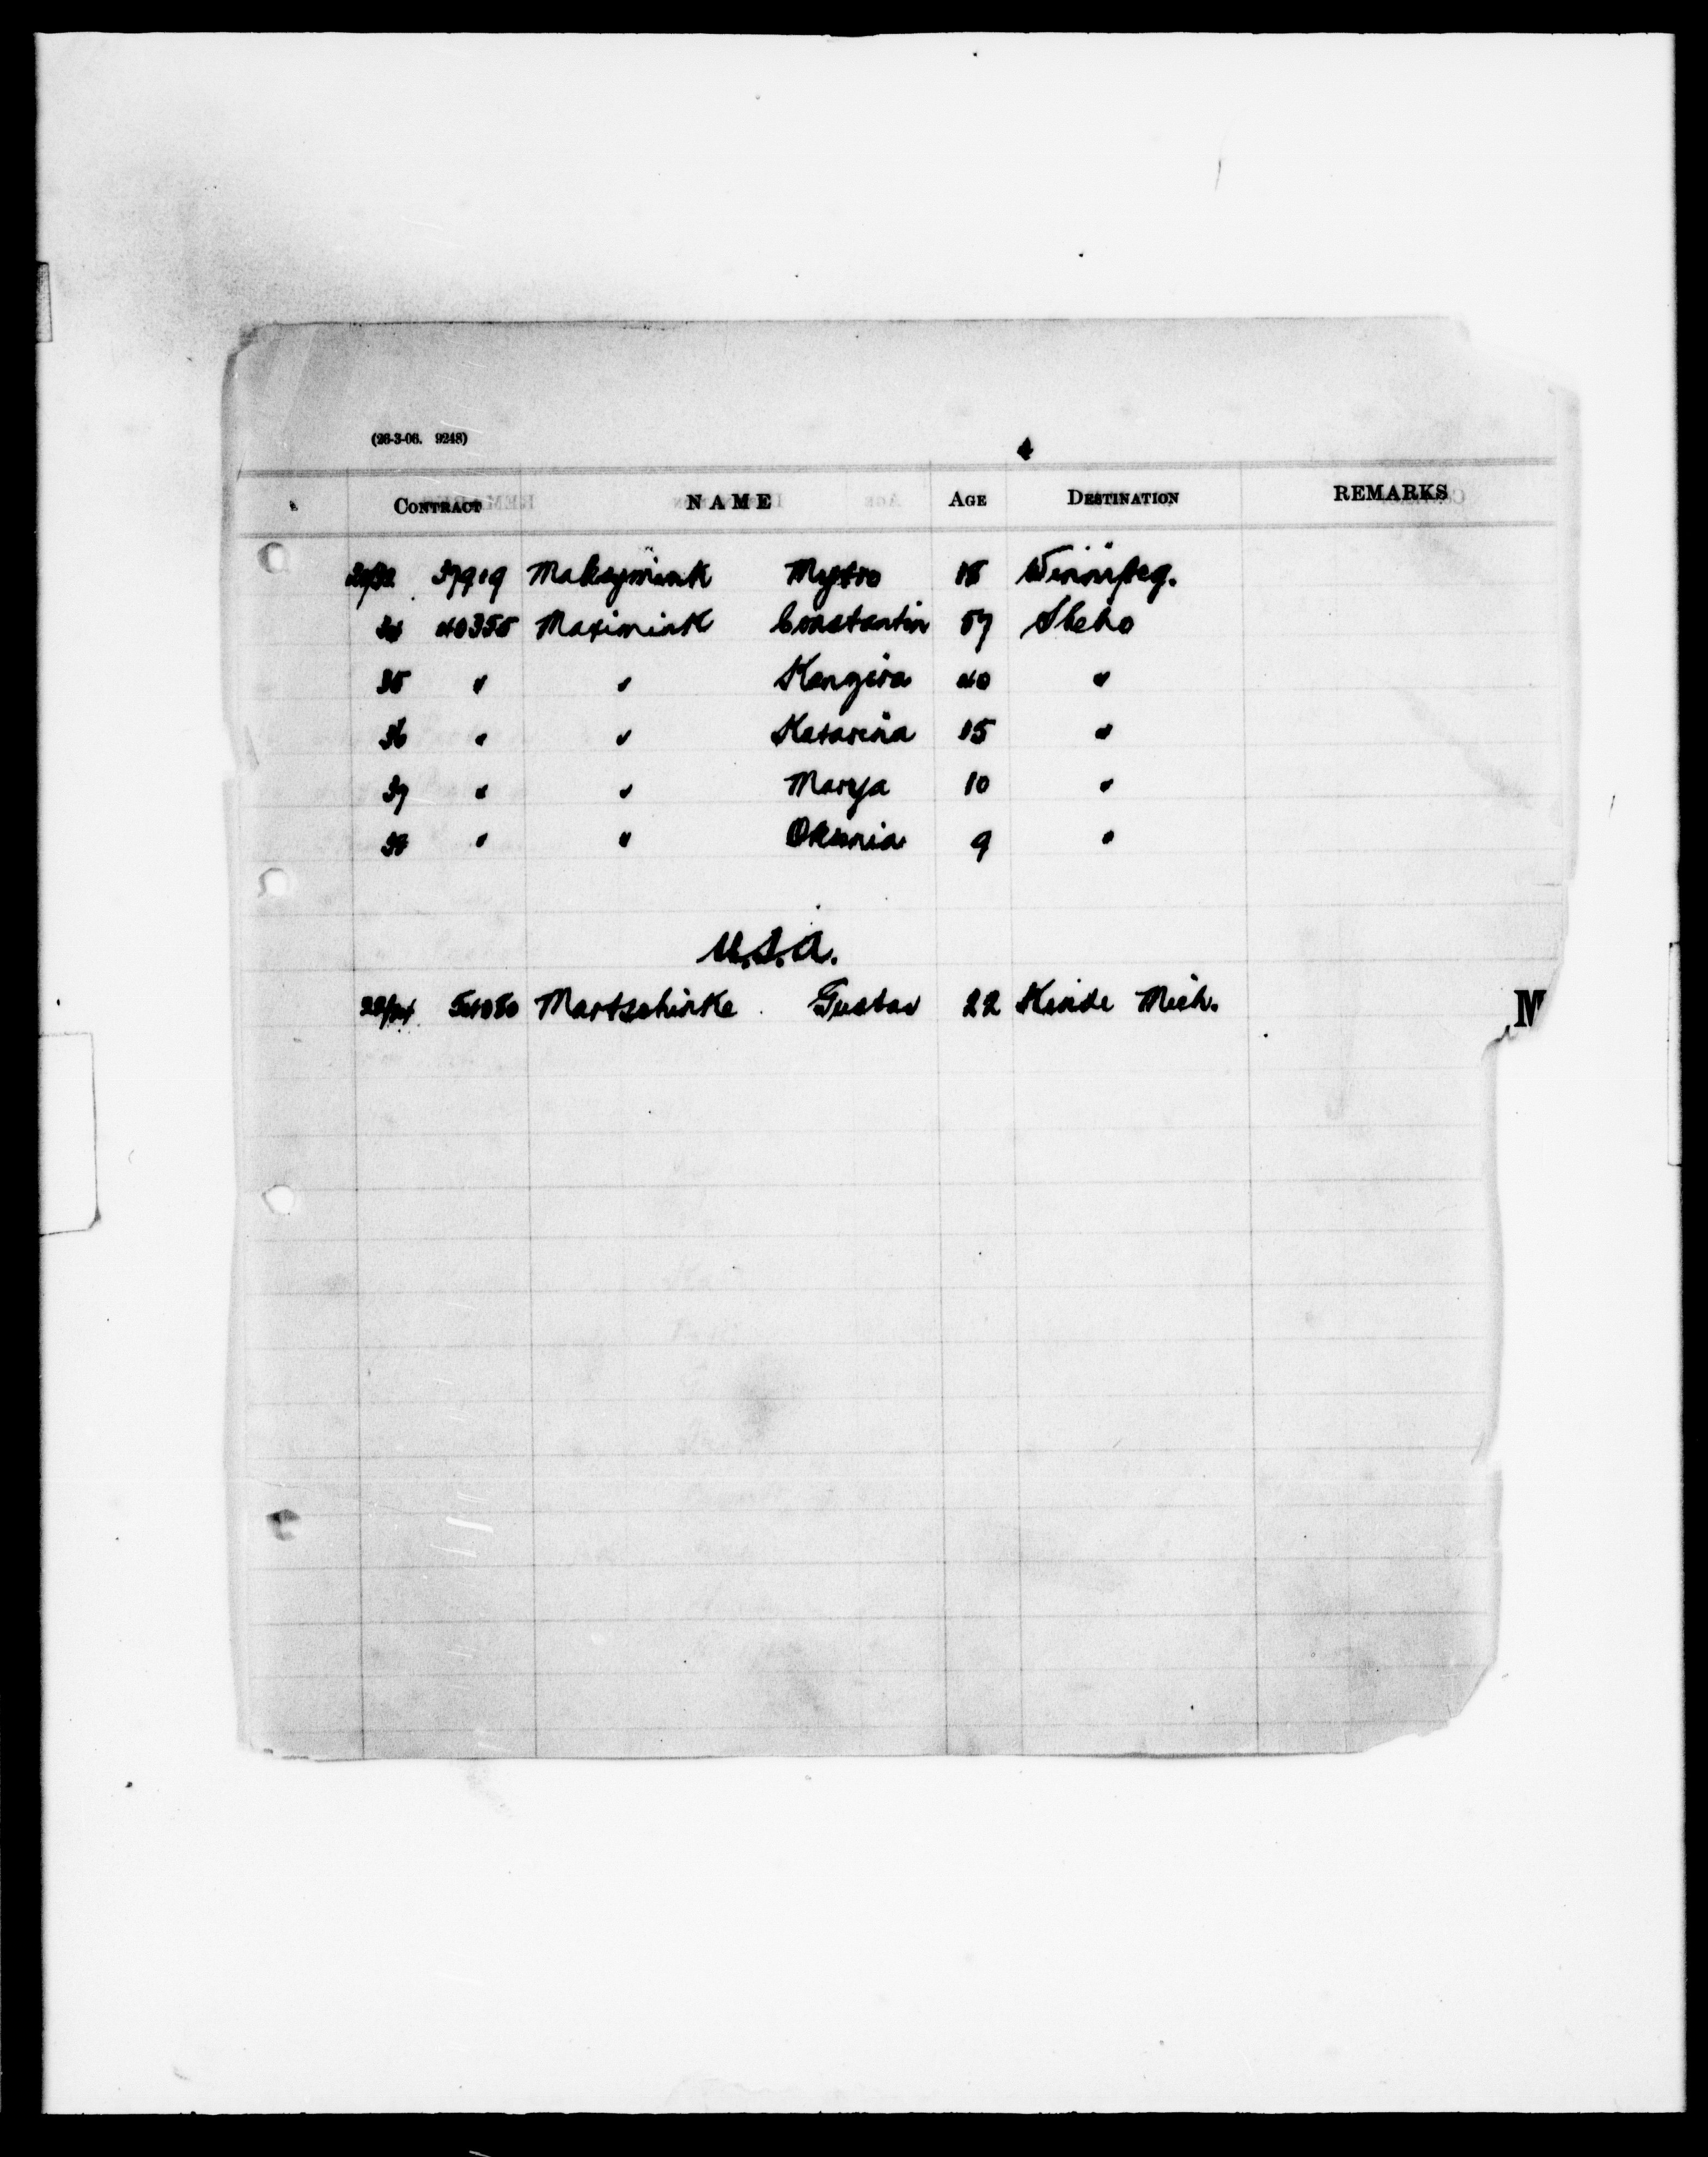 (26-3-06. 9248)
4
CONTRACT NAME AGE DESTINATION REMARKS
37919 Maksymiuk Mytro 18 Winnipeg.
34 40355 Maximiuk Constantin 57 Sheho
35 " " 40 "
36 " " Katarina 15 "
37 " " Marya 10 "
38 " " 9 "
U.S.A.
54080 Martschinke Gustav 22 Kinde Mich.
M